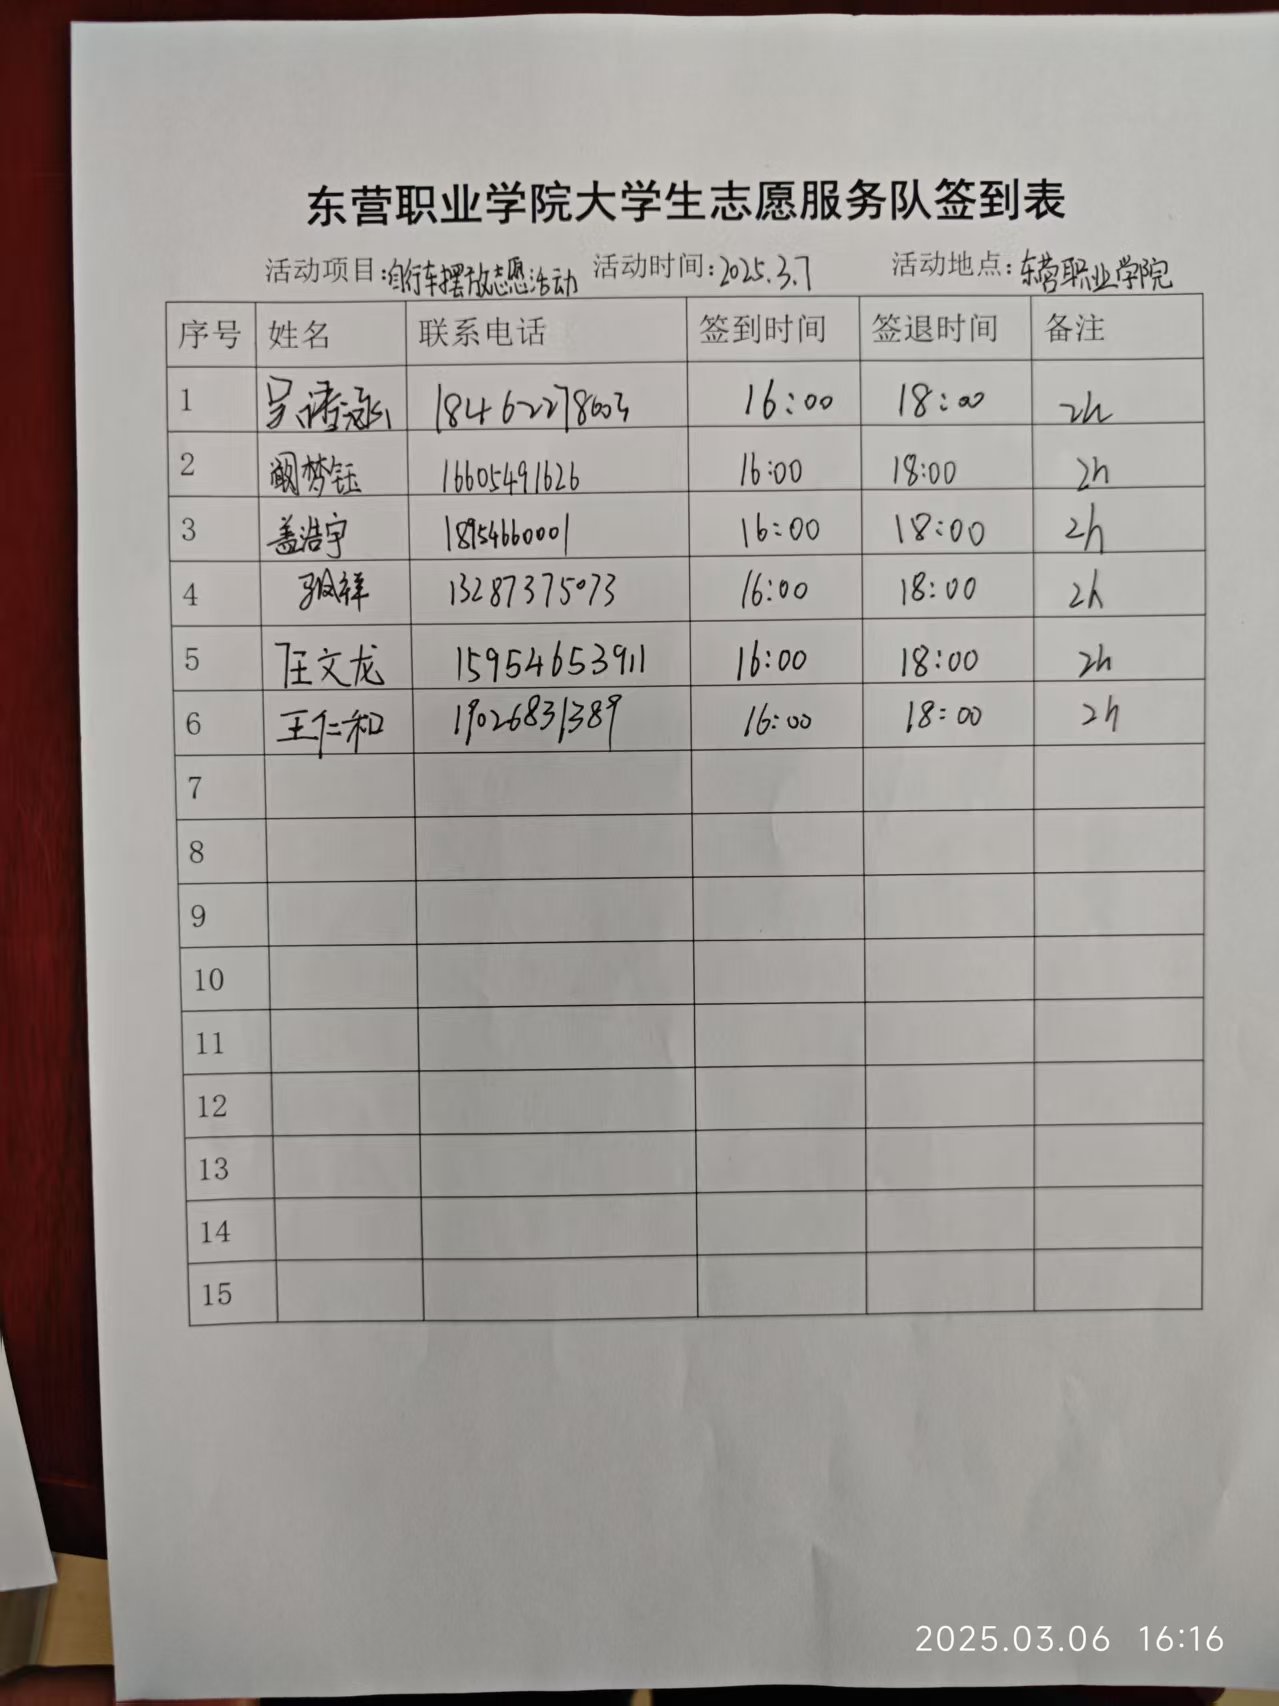 东营职业学院大学生志愿服务队签到表
活动项目:自行车摆放志愿活动 活动时间:2025.3.7 活动地点:东营职业学院
序号 姓名 联系电话 签到时间 签退时间 备注
1 18462278603 16:00 18:00 2h
2 阚梦钰 16605491626 16:00 18:00 2h
3 盖浩宇 18954660001 16:00 18:00 2h
4 13287375073 16:00 18:00 2h
5 汪文龙 15954653911 16:00 18:00 2h
6 王仁和 19026831389 16:00 18:00 2h
7
8
9
10
11
12
13
14
15
2025.03.06 16:16